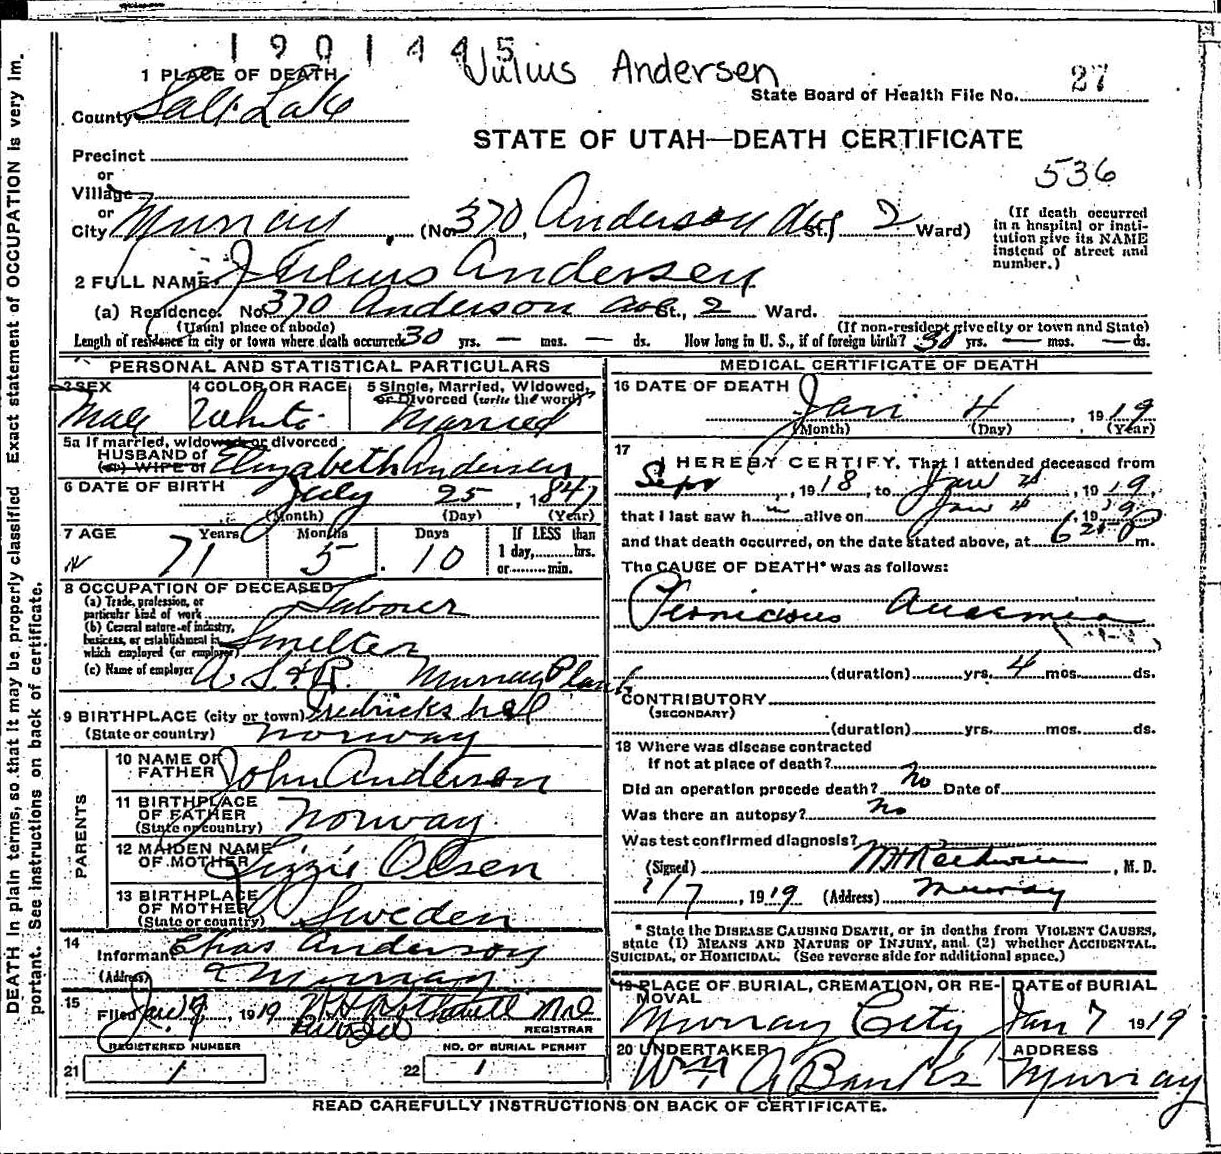 1901445
Julius Andersen
1 PLACE OF DEATH
State Board of Health File No. 27
County Salt Lake
STATE OF UTAH—DEATH CERTIFICATE
Precinct
or
Village
536
or
City Murray (No 370, Anderson Ave St., 2 Ward)
(If death occurred in a hospital or insti-
tution give its NAME
instead of street and
number.)
2 FULL NAME Julius Andersen
(a) Residence. No. 370 Anderson Ave St., 2 Ward.
(Usual place of abode) (If non-resident give city or town and State)
Length of residence in city or town where death occurred 30 yrs. — mos. — ds. How long in U. S., if of foreign birth? 30 yrs. — mos. — ds.
PERSONAL AND STATISTICAL PARTICULARS
3 SEX Male
4 COLOR OR RACE White
5 Single, Married, Widowed,
or Divorced (write the word)
Married
5a If married, widowed or divorced
HUSBAND of
(or) WIFE of Elizabeth Andersen
6 DATE OF BIRTH July 25, 1847
(Month) (Day) (Year)
7 AGE 71 Years 5 Months 10 Days
If LESS than
1 day, hrs.
or min.
8 OCCUPATION OF DECEASED
(a) Trade, profession, or
particular kind of work Laborer
(b) General nature of industry,
business, or establishment in
which employed (or employer) Smelter
(c) Name of employer A. S. & R. Murray Plant
9 BIRTHPLACE (city or town) Fredrickshall
(State or country) Norway
PARENTS
10 NAME OF
FATHER John Anderson
11 BIRTHPLACE
OF FATHER
(State or country) Norway
12 MAIDEN NAME
OF MOTHER Lizzie Olsen
13 BIRTHPLACE
OF MOTHER
(State or country) Sweden
14
Informant Chas Anderson
(Address) Murray
15
Filed Jan 9, 1919
REGISTRAR
REGISTERED NUMBER
NO. OF BURIAL PERMIT
21 1
22 1
MEDICAL CERTIFICATE OF DEATH
16 DATE OF DEATH
Jan 4, 1919
(Month) (Day) (Year)
17
I HEREBY CERTIFY, That I attended deceased from
Sept, 1918, to Jan 4, 1919,
that I last saw him alive on Jan 4, 1919
and that death occurred, on the date stated above, at 6 P m.
The CAUSE OF DEATH* was as follows:
Pernicious Anaemia
(duration) yrs. 4 mos. ds.
CONTRIBUTORY
(SECONDARY)
(duration) yrs. mos. ds.
18 Where was disease contracted
if not at place of death?
Did an operation precede death? no Date of
Was there an autopsy? no
Was test confirmed diagnosis?
(Signed) M. D.
1/7, 1919 (Address) Murray
* State the DISEASE CAUSING DEATH, or in deaths from VIOLENT CAUSES,
state (1) MEANS AND NATURE OF INJURY, and (2) whether ACCIDENTAL,
SUICIDAL, or HOMICIDAL. (See reverse side for additional space.)
19 PLACE OF BURIAL, CREMATION, OR RE-
MOVAL
Murray City
DATE of BURIAL
Jan 7 1919
20 UNDERTAKER
Wm A Banks
ADDRESS
Murray
READ CAREFULLY INSTRUCTIONS ON BACK OF CERTIFICATE.
DEATH in plain terms, so that it may be properly classified Exact statement of OCCUPATION is very im.
portant. See instructions on back of certificate.